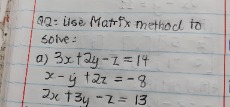 Q2: Use Matrix method to
solve:
a) 3x + 2y - z = 14
x - y + 2z = -8
2x + 3y - z = 13